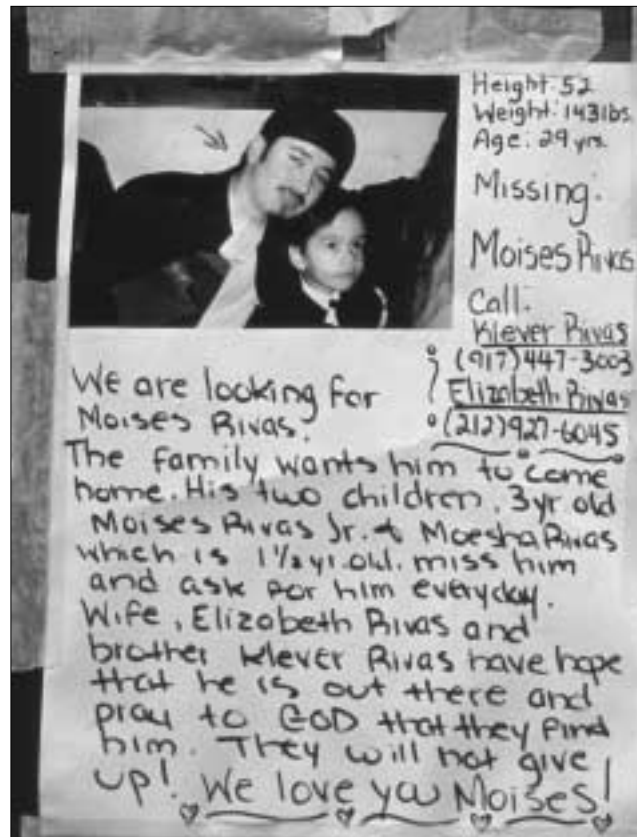 Height: 52
Weight: 143lbs.
Age: 29 yrs.
Missing:
Moises Rivas
Call:
Klever Rivas
(917)447-3003
Elizabeth Rivas
(212)927-6045
We are looking for
Moises Rivas.
The family wants him to come
home. His two children, 3yr old
Moises Rivas Jr. & Moesha Rivas
which is 1 1/2 yr. old. miss him
and ask for him everyday.
Wife, Elizabeth Rivas and
brother Klever Rivas have hope
that he is out there and
pray to GOD that they find
him. They will not give
up! We love you Moises!